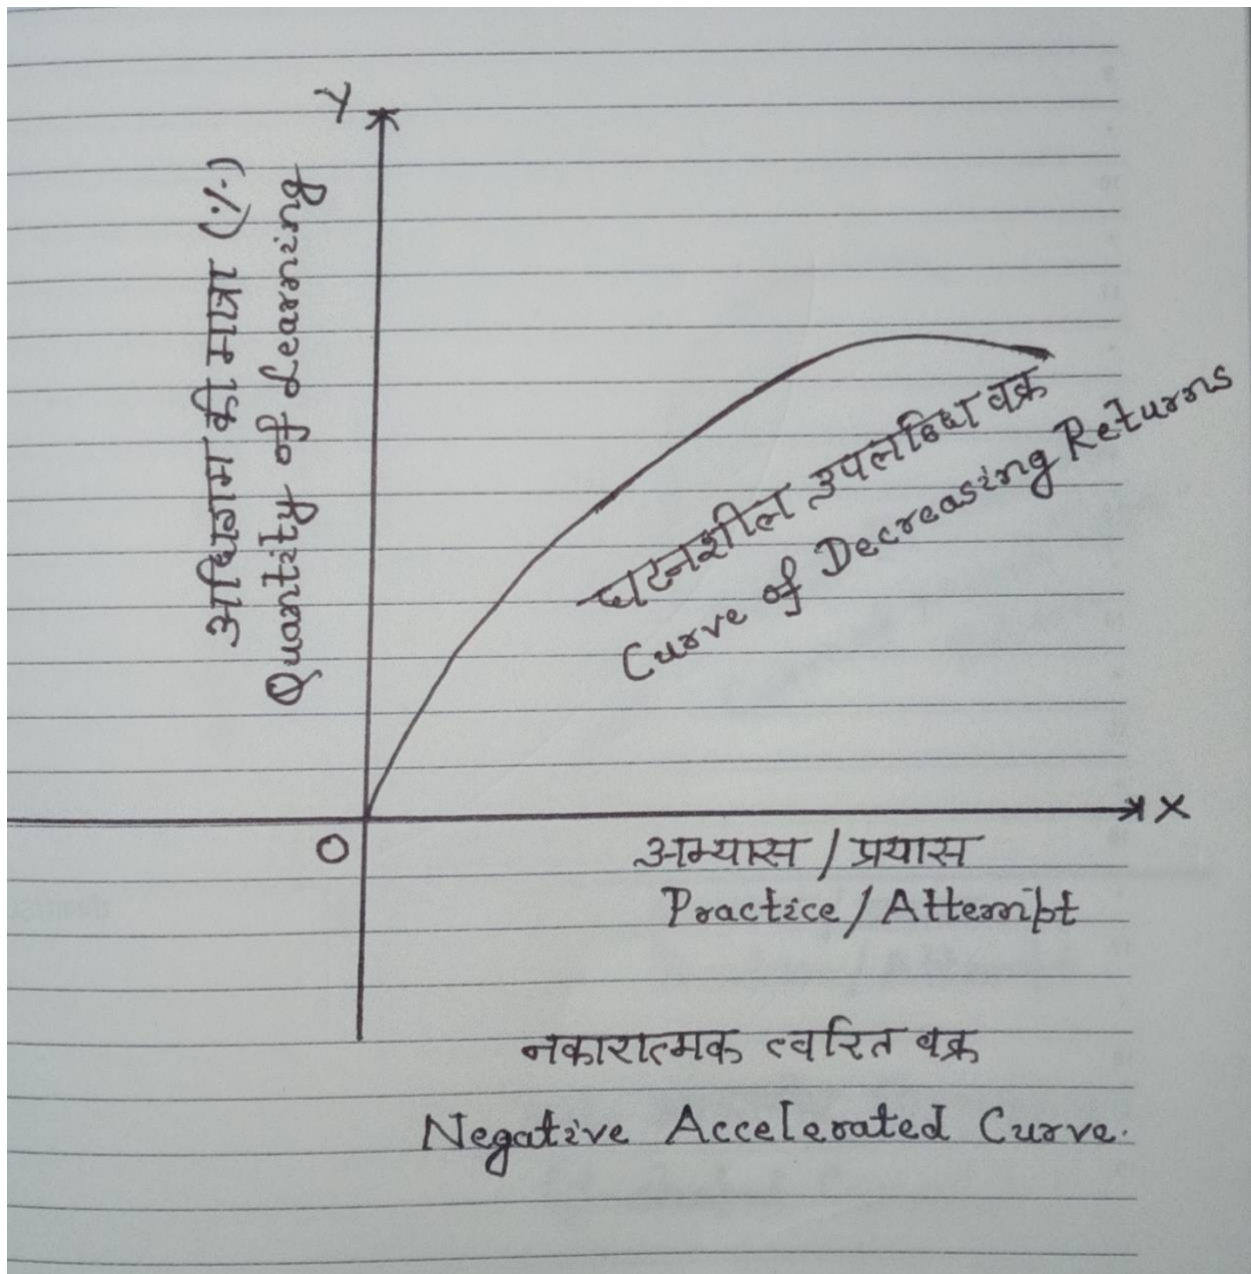 Y
अधिगम की मात्रा (%)
Quantity of Learning
घटनशील उपलब्धि वक्र
Curve of Decreasing Returns
X
O
अभ्यास / प्रयास
Practice / Attempt
नकारात्मक त्वरित वक्र
Negative Accelerated Curve.